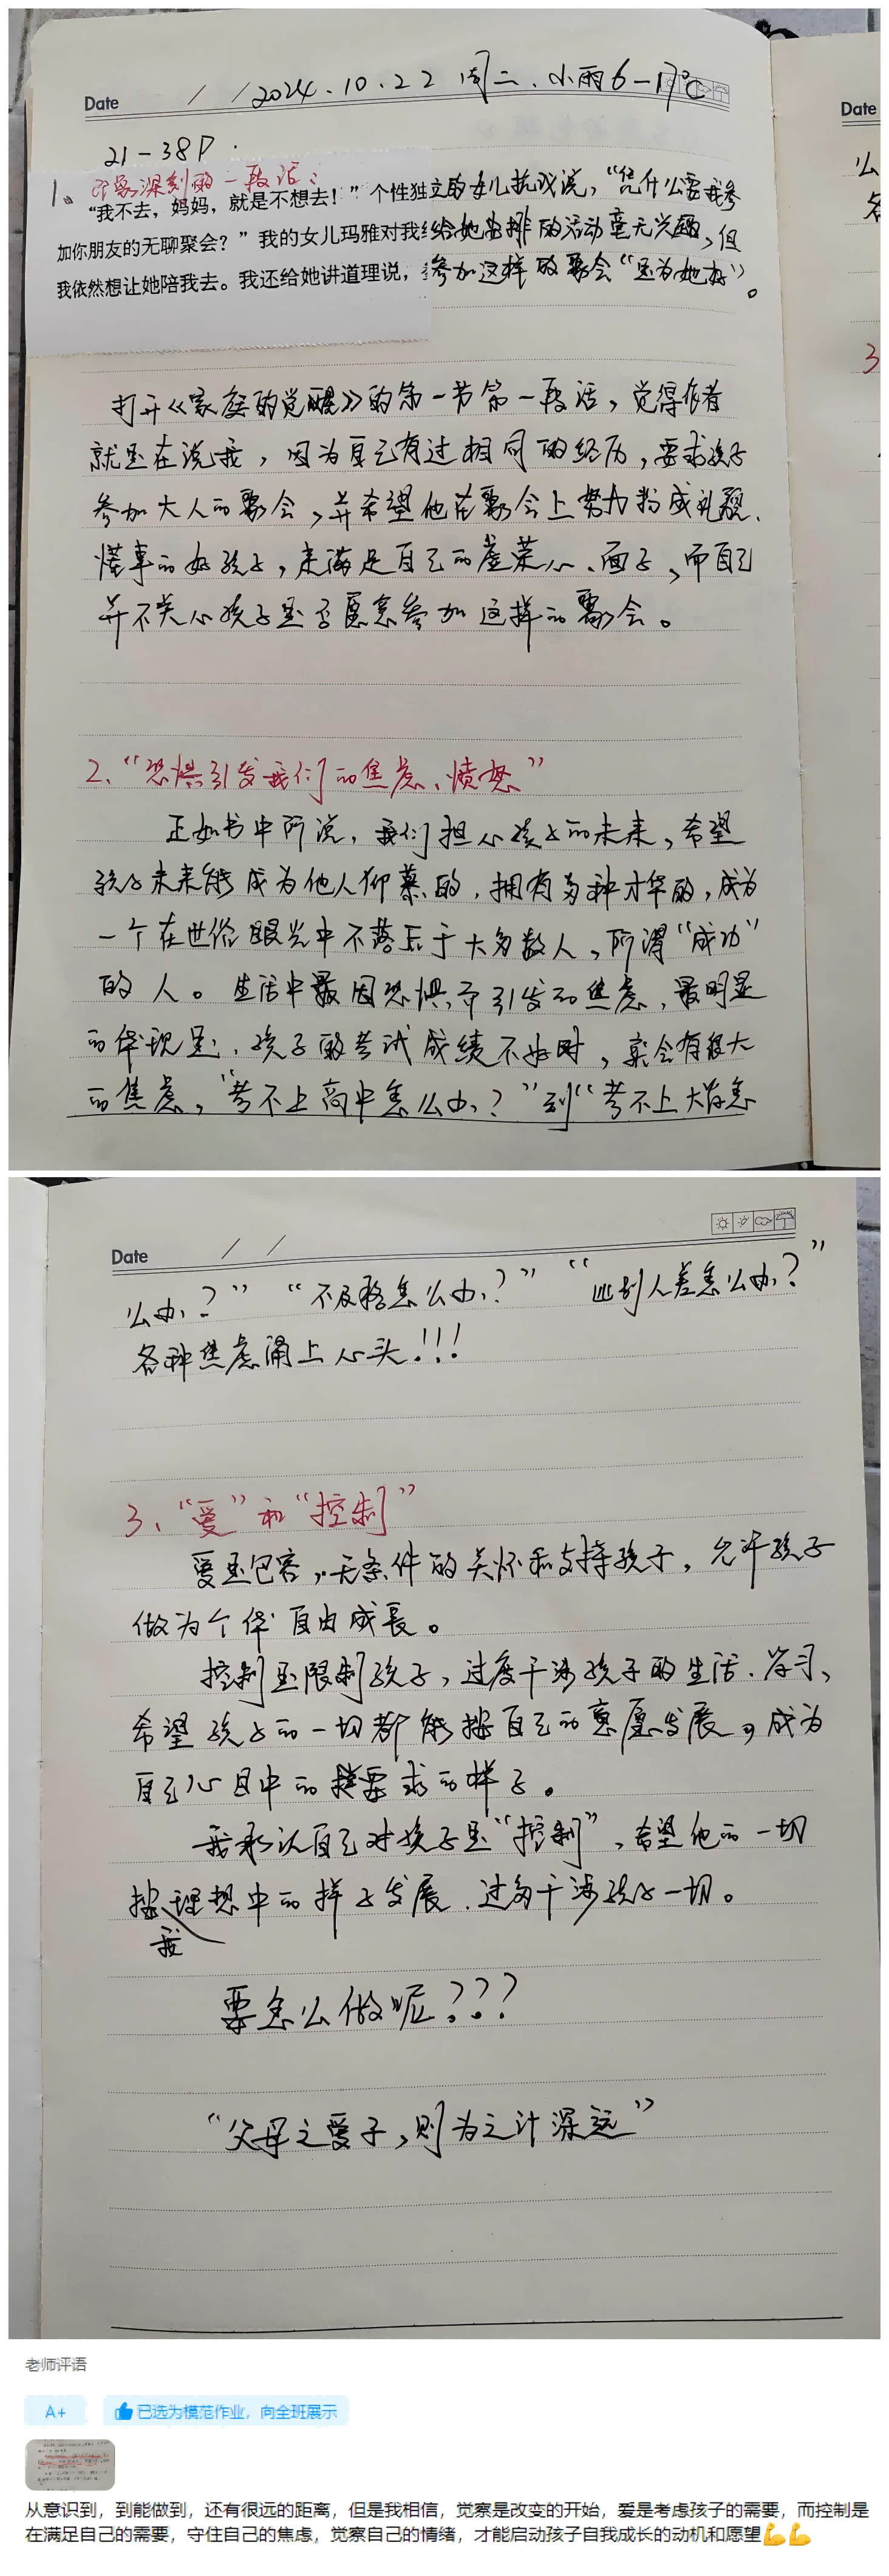 Date / / 2024.10.22 周二、小雨6-17℃
Date
21-38P.
1、印象深刻的一段话:
“我不去,妈妈,就是不想去!”个性独立的女儿抗议说,“凭什么要我参
加你朋友的无聊聚会?”我的女儿玛雅对我给她安排的活动毫无兴趣,但
我依然想让她陪我去。我还给她讲道理说,参加这样的聚会“是为她好”。
打开《家庭的觉醒》的第一节第一段话,觉得作者
就是在说我,因为自己有过相同的经历,要求孩子
参加大人的聚会,并希望他在聚会上努力扮成礼貌、
懂事的好孩子,来满足自己的虚荣心、面子,而自己
并不关心孩子是否愿意参加这样的聚会。
2、“恐惧引发我们的焦虑、愤怒”
正如书中所说,我们担心孩子的未来,希望
孩子未来能成为他人仰慕的,拥有多种才华的,成为
一个在世俗眼光中不落后于大多数人,所谓“成功”
的人。生活中最因恐惧而引发的焦虑,最明显
的体现是,孩子的考试成绩不好时,就会有很大
的焦虑,“考不上高中怎么办?”到“考不上大学怎
么
各
3
Date / /
么办?”“不及格怎么办?”“比别人差怎么办?”
各种焦虑涌上心头!!!
3、“爱”和“控制”
爱是包容,无条件的关怀和支持孩子,允许孩子
做为个体自由成长。
控制是限制孩子,过度干涉孩子的生活、学习,
希望孩子的一切都能按自己的意愿发展,成为
自己心目中的要求的样子。
我承认自己对孩子是“控制”,希望他的一切
按我理想中的样子发展,过多干涉孩子一切。
要怎么做呢???
“父母之爱子,则为之计深远”
老师评语
A+ 已选为模范作业,向全班展示
从意识到,到能做到,还有很远的距离,但是我相信,觉察是改变的开始,爱是考虑孩子的需要,而控制是
在满足自己的需要,守住自己的焦虑,觉察自己的情绪,才能启动孩子自我成长的动机和愿望💪💪